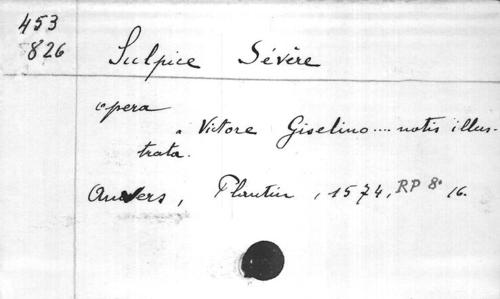 453
826
Sulpice Sévère
opera
a Victore Giselino .... notis illus-
trata.
Anvers, Plantin, 1574, RP 8° 16.